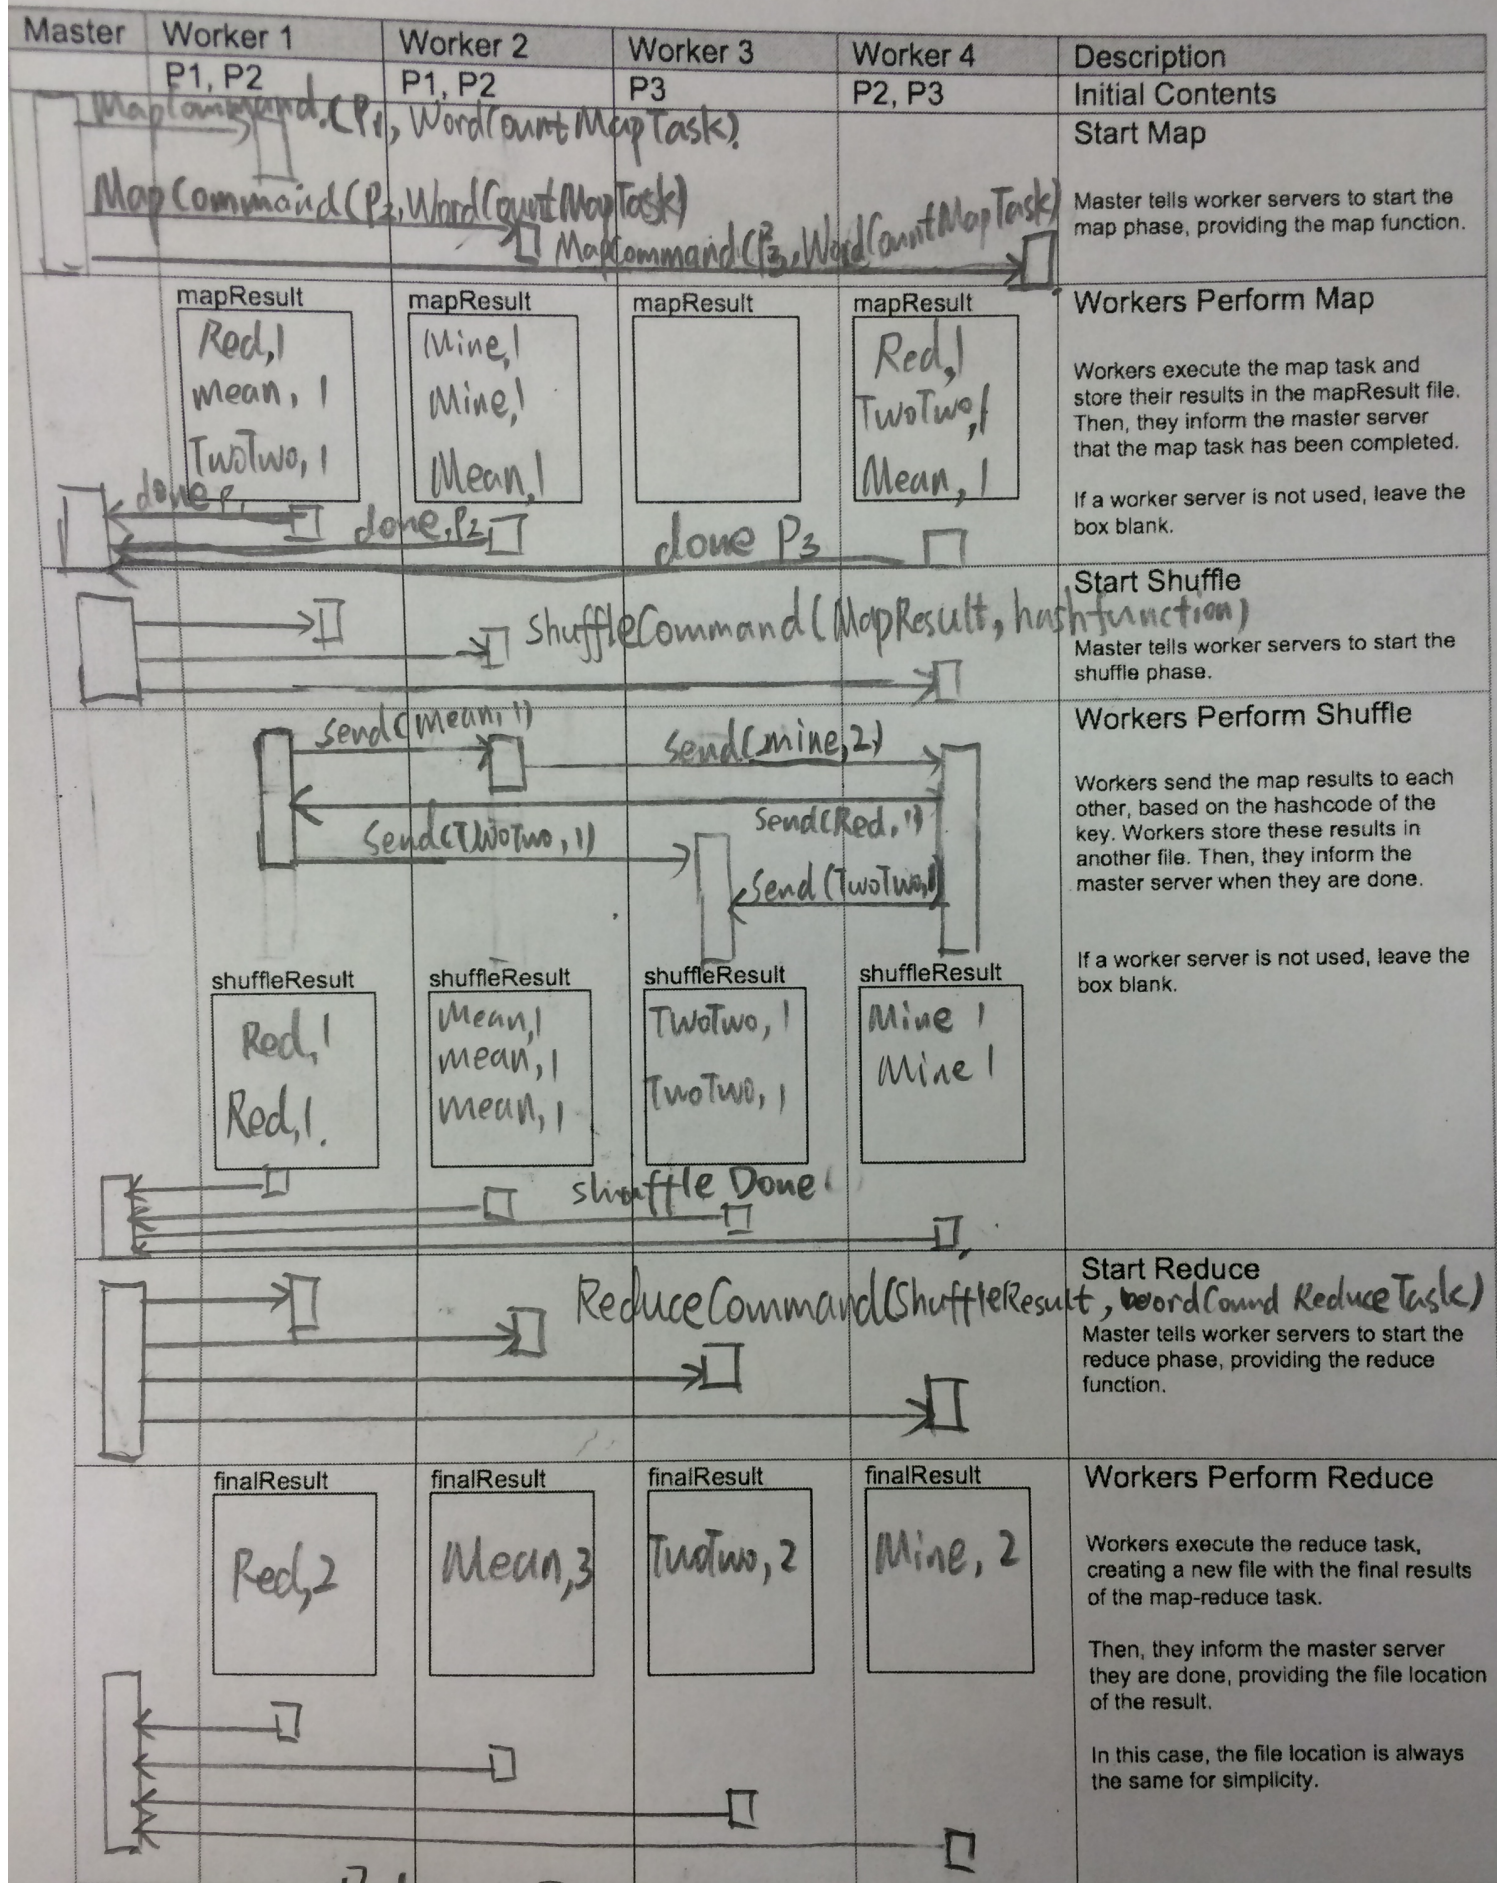 Master Worker 1 Worker 2 Worker 3 Worker 4 Description
P1, P2 P1, P2 P3 P2, P3 Initial Contents
MapCommand.(P1, WordCountMapTask).
Start Map
MapCommand(P2, WordCountMapTask)
MapCommand(P3, WordCountMapTask)
Master tells worker servers to start the
map phase, providing the map function.
mapResult mapResult mapResult mapResult
Workers Perform Map
Red,1 Mine,1 Red,1
mean, 1 Mine,1 TwoTwo,1
TwoTwo, 1 Mean,1 Mean, 1
Workers execute the map task and
store their results in the mapResult file.
Then, they inform the master server
that the map task has been completed.
If a worker server is not used, leave the
box blank.
done P1
done, P2
done P3
Start Shuffle
shuffleCommand(MapResult, hashfunction)
Master tells worker servers to start the
shuffle phase.
Workers Perform Shuffle
send(mean, 1)
send(mine, 2)
send(Red, 1)
send(TwoTwo, 1)
send(TwoTwo,1)
Workers send the map results to each
other, based on the hashcode of the
key. Workers store these results in
another file. Then, they inform the
master server when they are done.
If a worker server is not used, leave the
box blank.
shuffleResult shuffleResult shuffleResult shuffleResult
Red,1 Mean,1 TwoTwo, 1 Mine 1
mean,1 Mine 1
Red,1. mean, 1 TwoTwo, 1
shuffle Done
Start Reduce
ReduceCommand(ShuffleResult, wordCound ReduceTask)
Master tells worker servers to start the
reduce phase, providing the reduce
function.
finalResult finalResult finalResult finalResult
Workers Perform Reduce
Red,2 Mean,3 TwoTwo, 2 Mine, 2
Workers execute the reduce task,
creating a new file with the final results
of the map-reduce task.
Then, they inform the master server
they are done, providing the file location
of the result.
In this case, the file location is always
the same for simplicity.